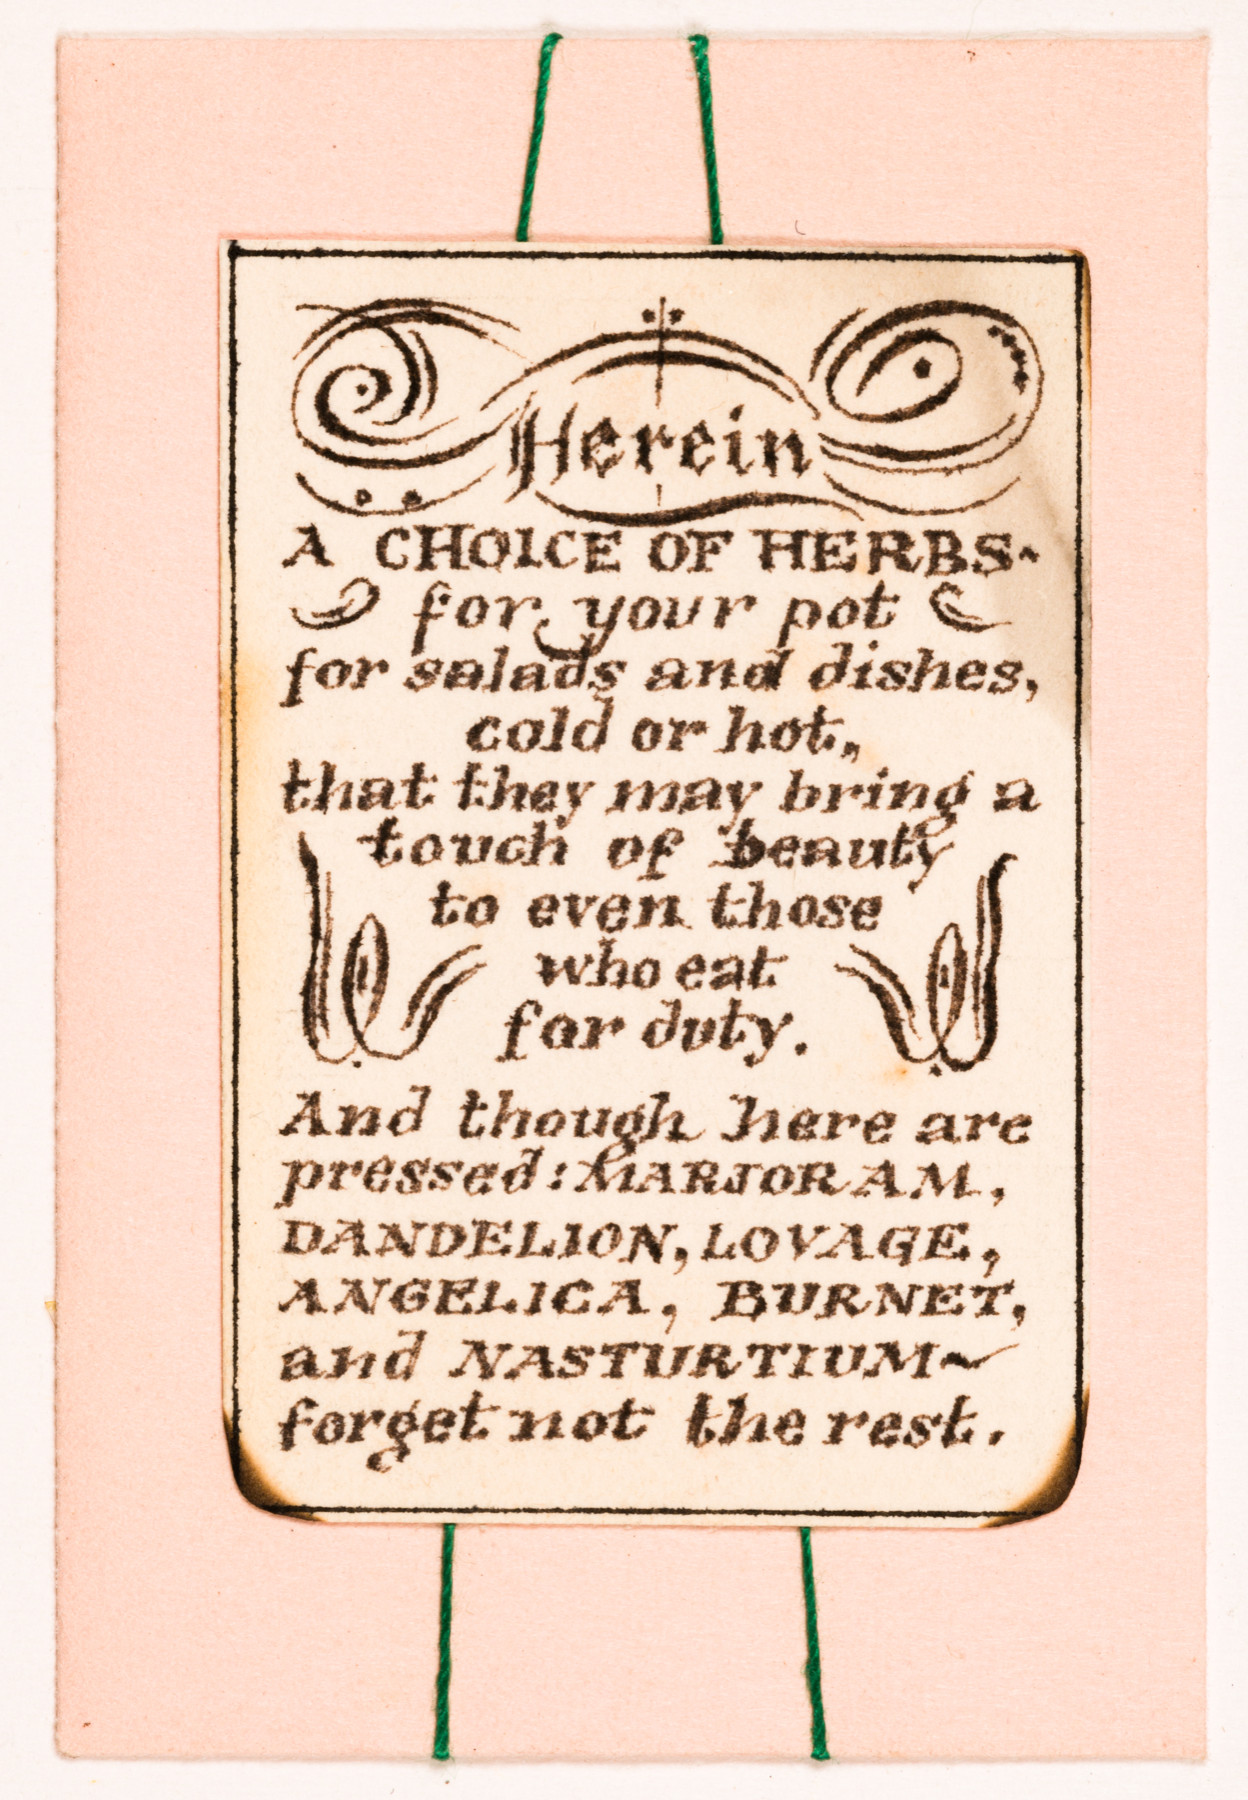 Herein
A CHOICE OF HERBS~
for your pot
for salads and dishes,
cold or hot,
that they may bring a
touch of beauty
to even those
who eat
for duty.
And though here are
pressed: MARJORAM,
DANDELION, LOVAGE,
ANGELICA, BURNET,
and NASTURTIUM~
forget not the rest.